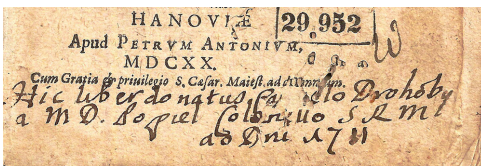 HANOVIÆ
29.952
Apud PETRVM ANTONIVM,
MDCXX.
Cum Gratia & priuilegio S. Cæsar. Maiest. ad
Hic liber donatus Drohoby
a M D. Popiel Colonello S R M
ad Dni 1711